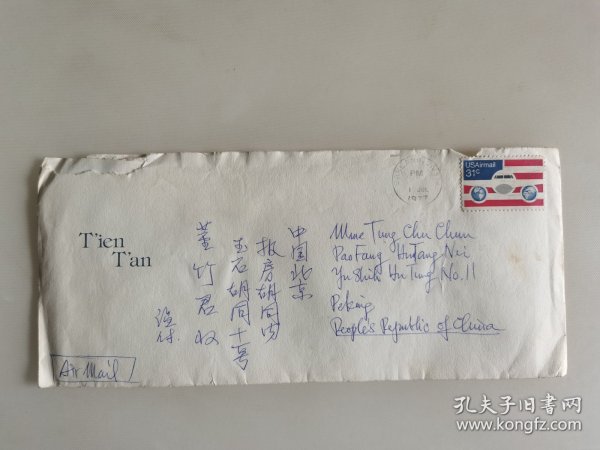 T'ien
T'an
PM
1 JUL
1977
USAirmail
31c
中国北京
报房胡同内
玉石胡同十一号
董竹君收
Mme Tung Chu Chun
Pao Fang Hutung Nei
Yu Shih Hu Tung No. 11
Peking
Peoples Republic of China
Air Mail
孔夫子旧书网
www.kongfz.com